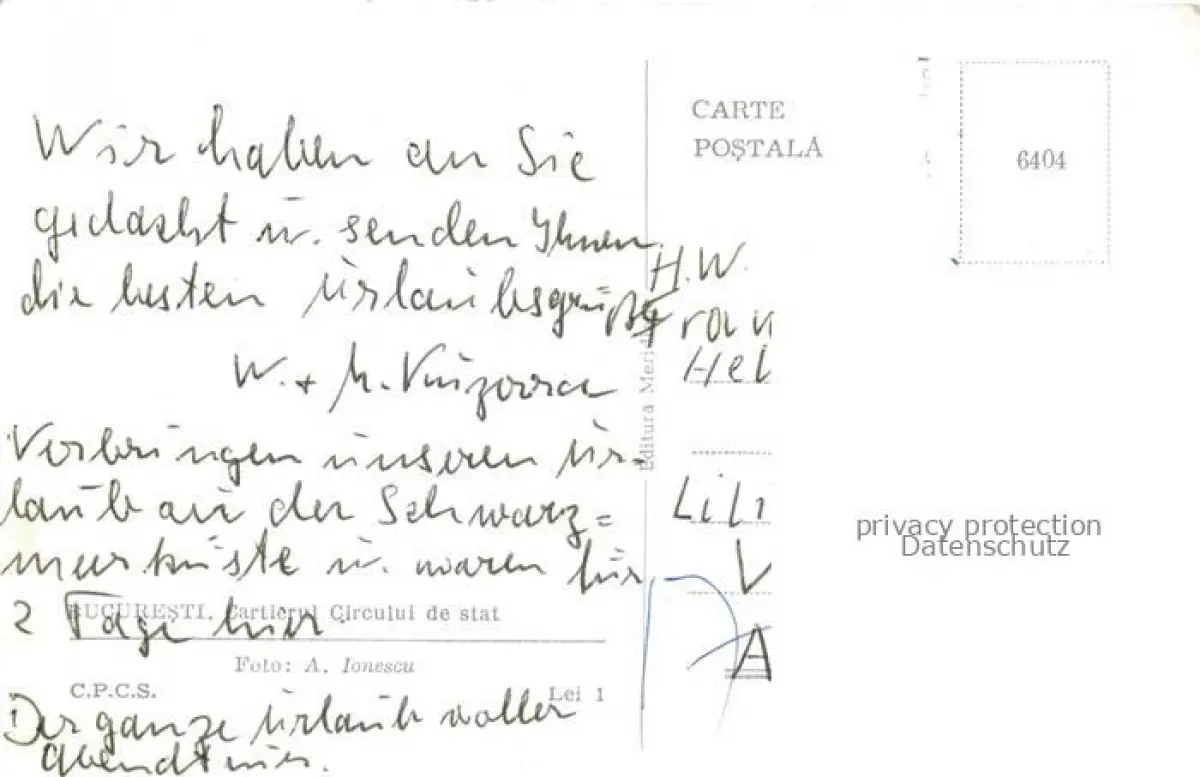 Wir haben an Sie
gedacht u. senden Ihnen
die besten Urlaubsgrüße
W. + M.
Verbringen unseren Ur-
laub an der Schwarz=
meerküste u. waren für
2 Tage hier.
Der ganze Urlaub voller
CARTE
POȘTALĂ
6404
H.W.
Frau
Hel
Lili
V
A
Editura Meri
BUCUREȘTI. Cartierul Circului de stat
Foto: A. Ionescu
C.P.C.S.
Lei 1
privacy protection
Datenschutz